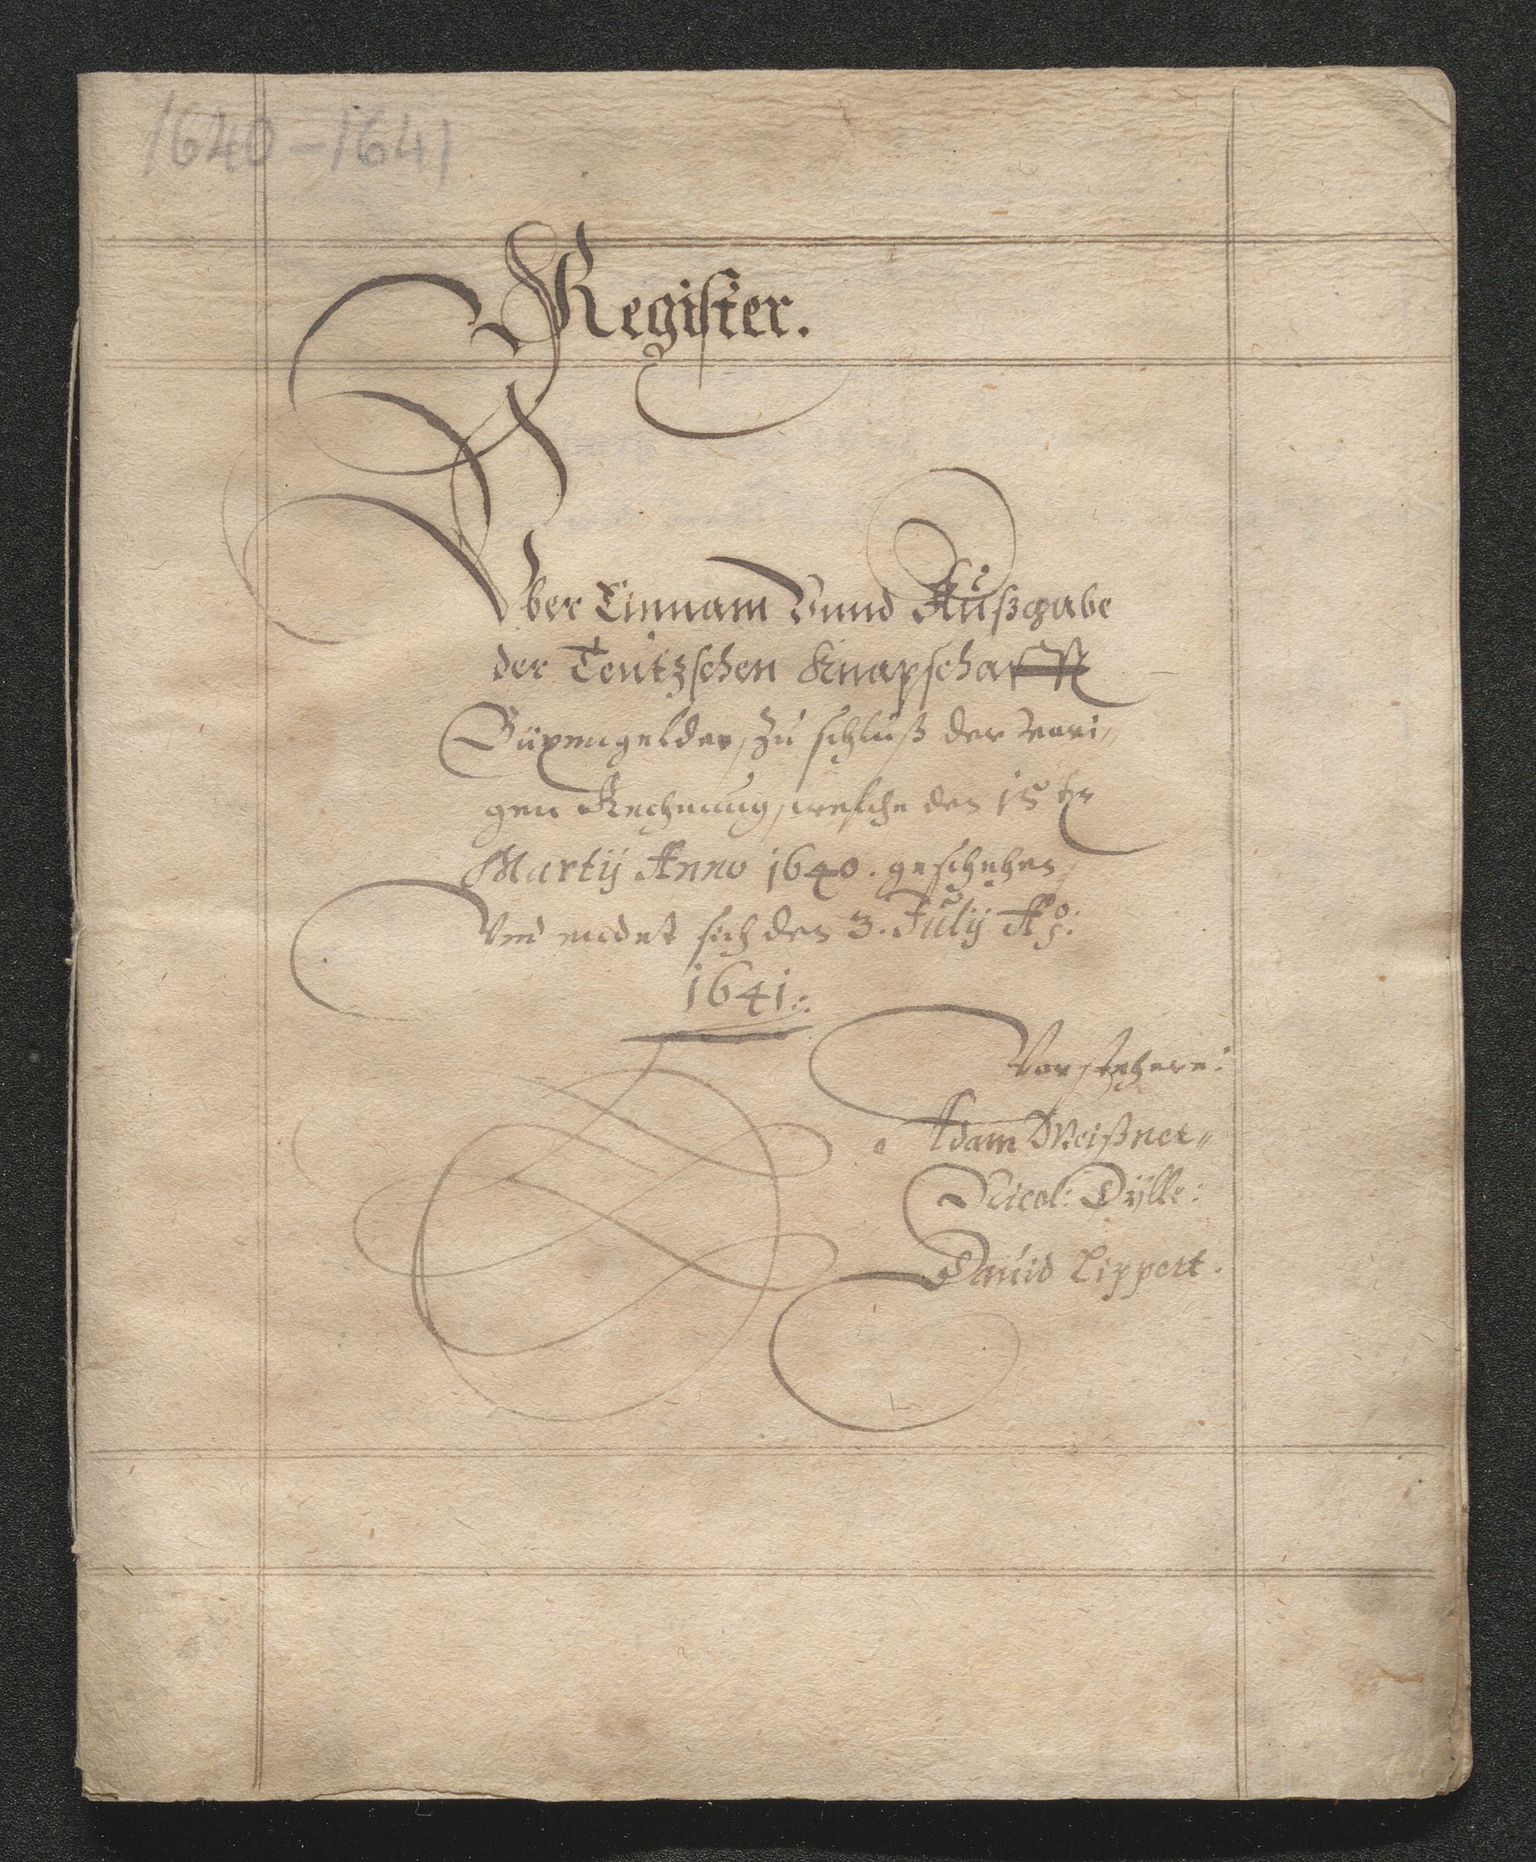 1640-1641
Register.
Vber Einnam Vnnd Außgabe
der Teutzschen Knapschafft
Büxengelder, Zu schluß der vori,,
gen Rechnung, welche den 15 tn
Martij Anno 1640. geschehen,
Vnd endet sich den 3. Julij Ao:
1641.:.
Vorstehere:
Adam Meißner,,
Nicol: Dÿlle:
Dauid Lippert.